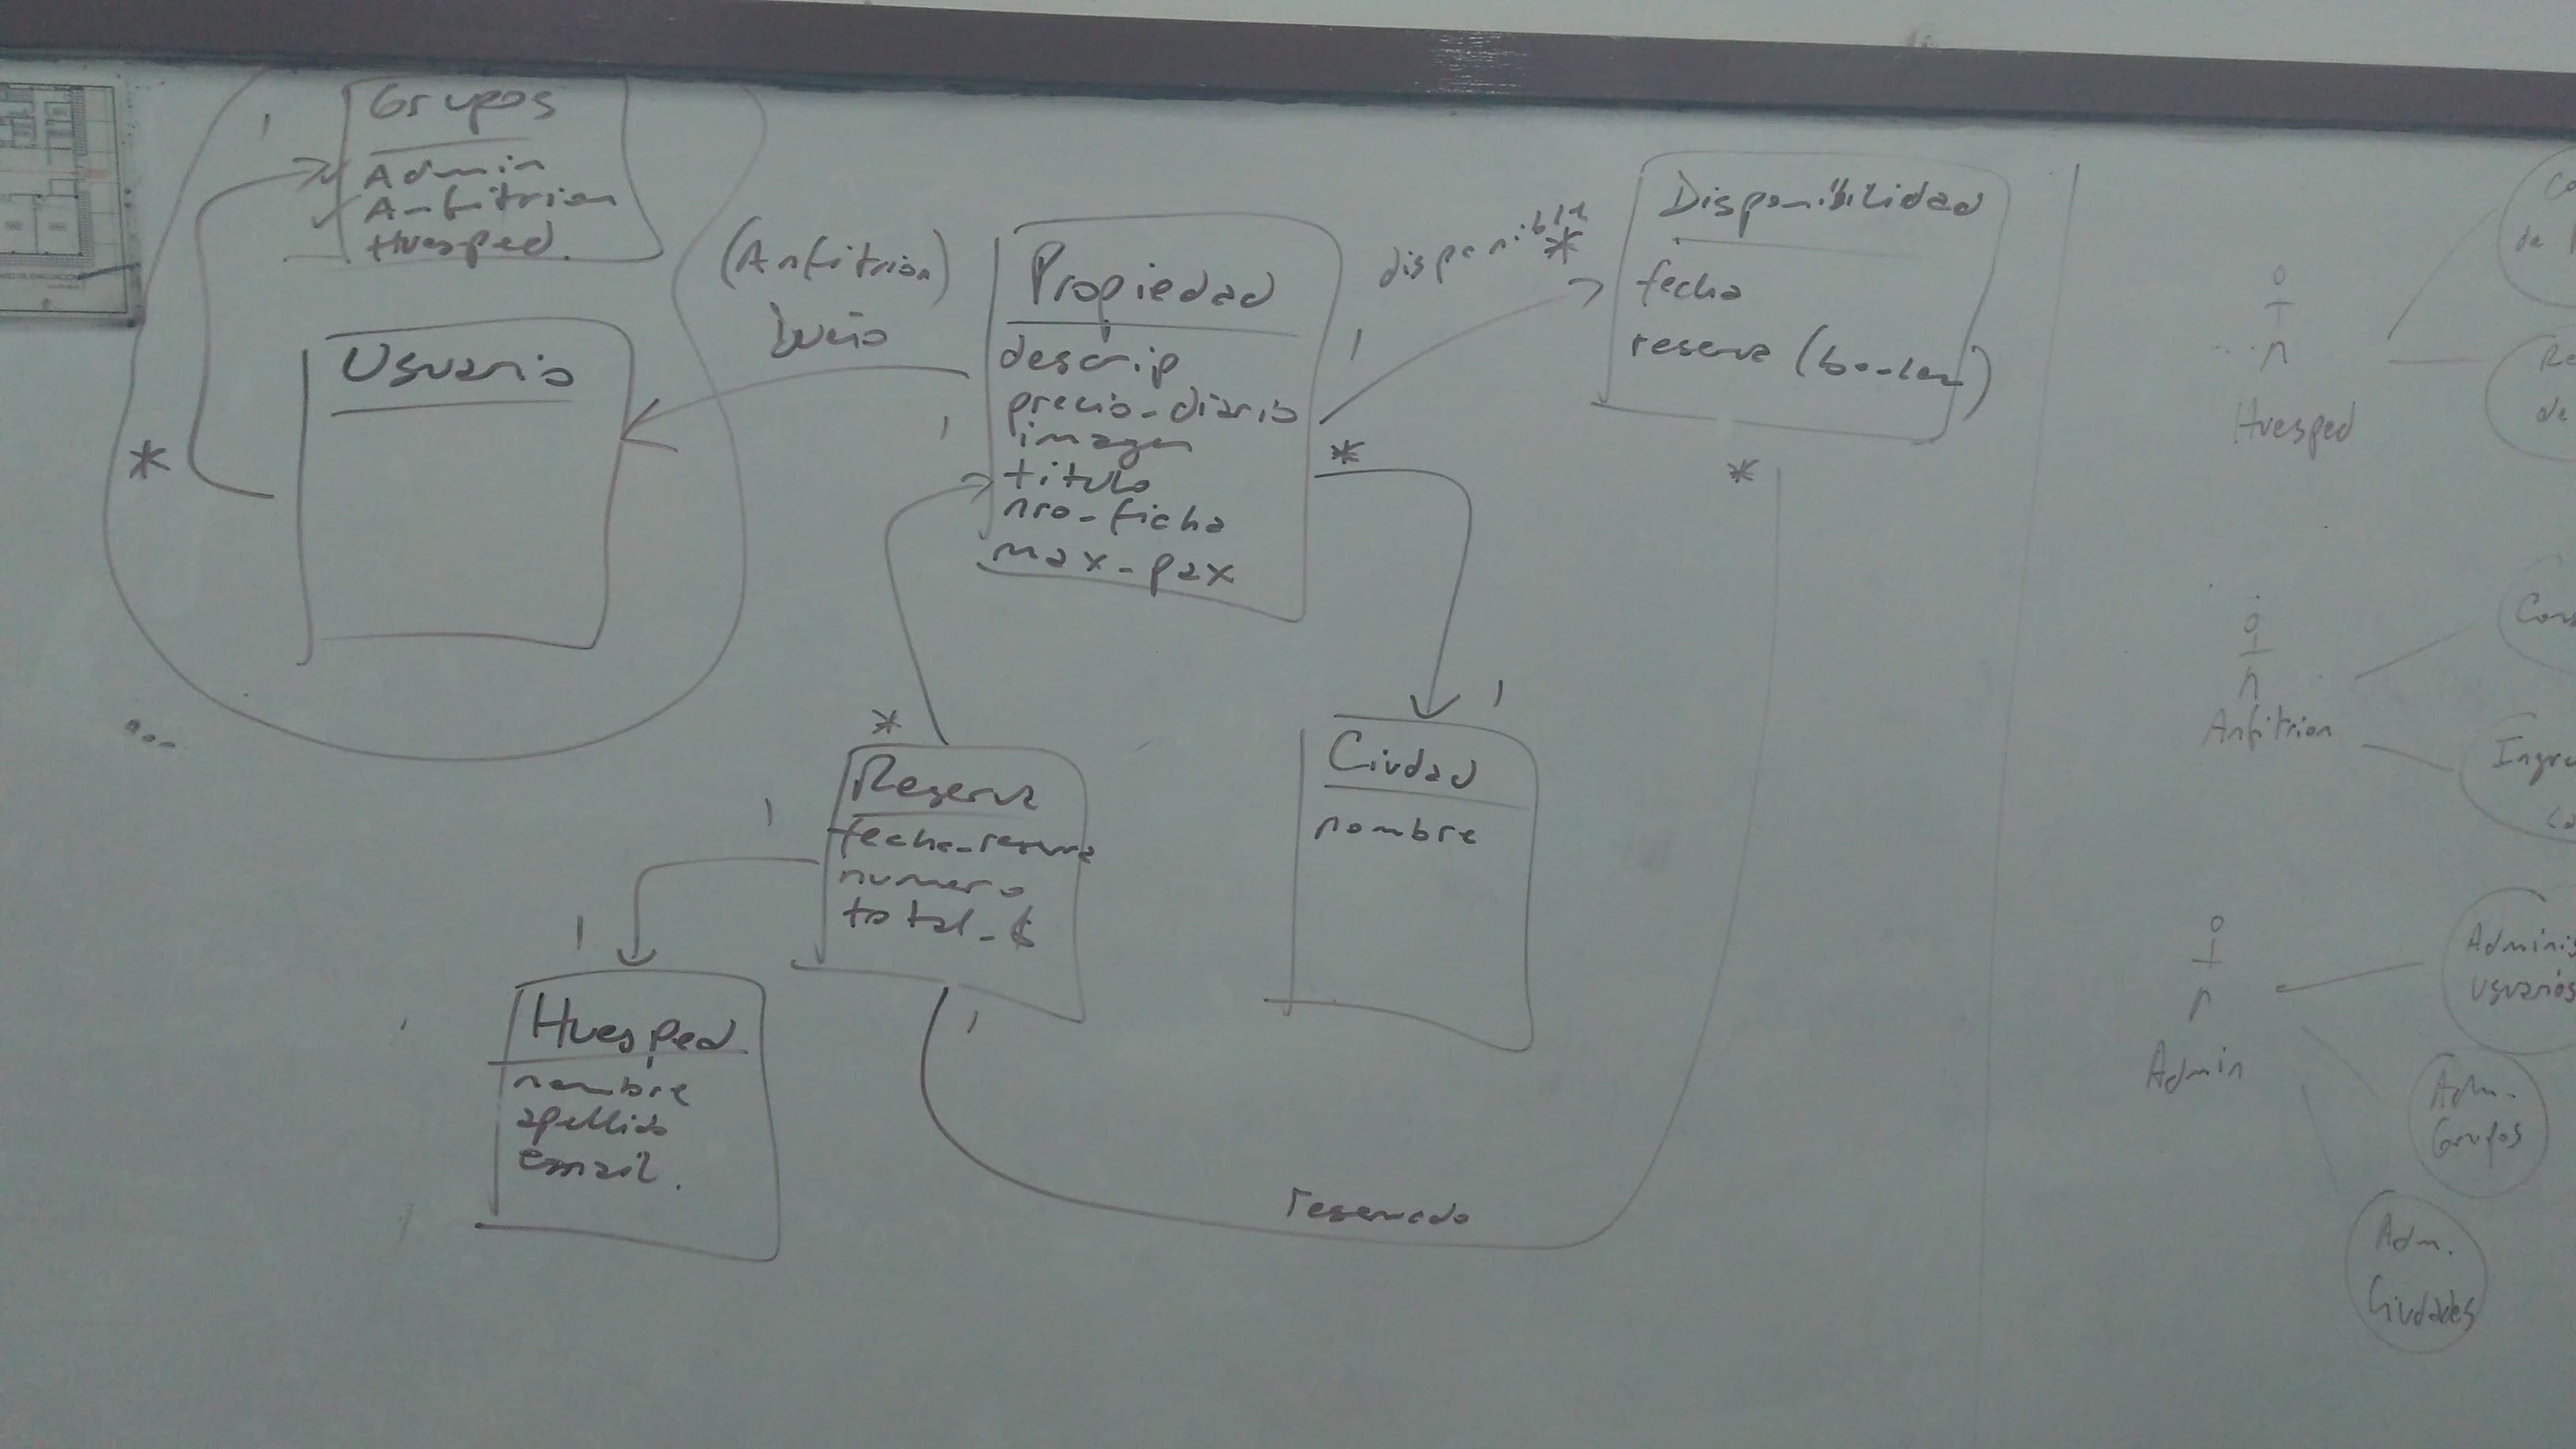 1
Grupos
Admin
Anfitrion
Huesped.
*
Usuario
(Anfitrion)
Dueño
Propiedad
descrip
precio_diario
imagen
titulo
nro_ficha
max_pax
1
1
*
disponible
*
Disponibilidad
fecha
reserva (boolean)
*
*
1
Reserva
fecha_reserva
numero
total_$
1
1
Huesped
nombre
apellido
email.
1
Ciudad
nombre
1
reservado
Huesped
Co
de
Re
de
Anfitrion
Cons
Ingre
Admin
Adminis
usuarios
Adm.
Grupos
Adm.
Ciudades